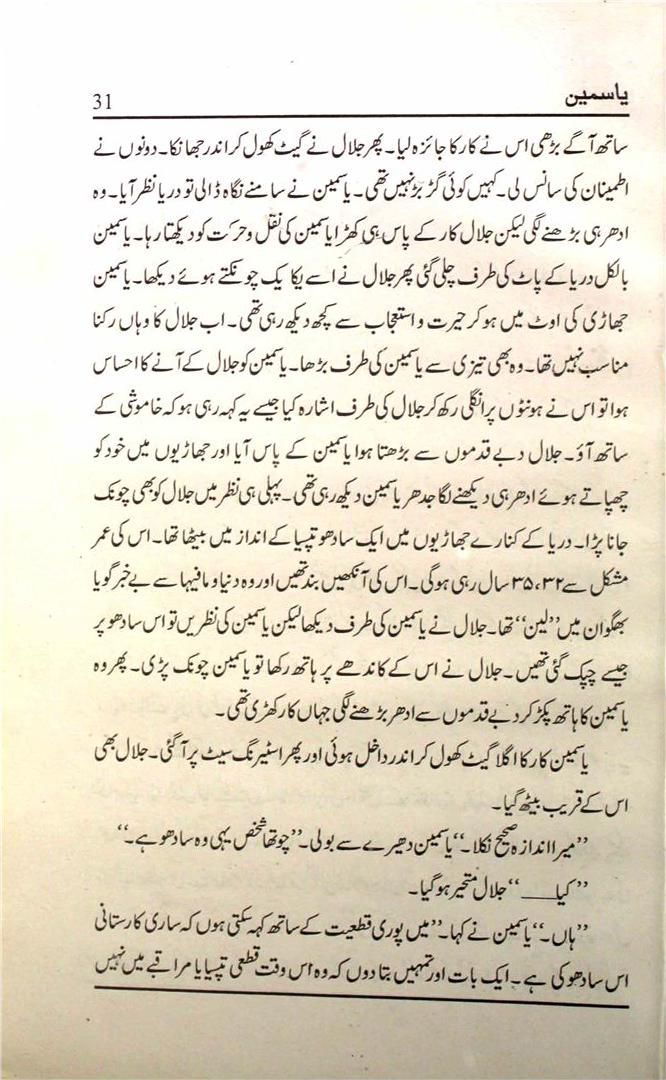 یاسمین 31
ساتھ آگے بڑھی اس نے کار کا جائزہ لیا۔ پھر جلال نے گیٹ کھول کر اندر جھانکا۔ دونوں نے
اطمینان کی سانس لی۔ کہیں کوئی گڑبڑ نہیں تھی۔ یاسمین نے سامنے نگاہ ڈالی تو دریا نظر آیا۔ وہ
ادھر ہی بڑھنے لگی لیکن جلال کار کے پاس ہی کھڑا یاسمین کی نقل و حرکت کو دیکھتا رہا۔ یاسمین
بالکل دریا کے پاٹ کی طرف چلی گئی پھر جلال نے اسے یکایک چونکتے ہوئے دیکھا۔ یاسمین
جھاڑی کی اوٹ میں ہو کر حیرت و استعجاب سے کچھ دیکھ رہی تھی۔ اب جلال کا وہاں رکنا
مناسب نہیں تھا۔ وہ بھی تیزی سے یاسمین کی طرف بڑھا۔ یاسمین کو جلال کے آنے کا احساس
ہوا تو اس نے ہونٹوں پر انگلی رکھ کر جلال کی طرف اشارہ کیا جیسے یہ کہہ رہی ہو کہ خاموشی کے
ساتھ آؤ۔ جلال دبے قدموں سے بڑھتا ہوا یاسمین کے پاس آیا اور جھاڑیوں میں خود کو
چھپاتے ہوئے ادھر ہی دیکھنے لگا جدھر یاسمین دیکھ رہی تھی۔ پہلی ہی نظر میں جلال کو بھی چونک
جانا پڑا۔ دریا کے کنارے جھاڑیوں میں ایک سادھو تپسیا کے انداز میں بیٹھا تھا۔ اس کی عمر
مشکل سے ۳۲، ۳۵ سال رہی ہوگی۔ اس کی آنکھیں بند تھیں اور وہ دنیا و مافیہا سے بے خبر گویا
بھگوان میں ”لین“ تھا۔ جلال نے یاسمین کی طرف دیکھا لیکن یاسمین کی نظریں تو اس سادھو پر
جیسے چپک گئی تھیں۔ جلال نے اس کے کاندھے پر ہاتھ رکھا تو یاسمین چونک پڑی۔ پھر وہ
یاسمین کا ہاتھ پکڑ کر دبے قدموں سے ادھر بڑھنے لگی جہاں کار کھڑی تھی۔
یاسمین کار کا اگلا گیٹ کھول کر اندر داخل ہوئی اور پھر اسٹیرنگ سیٹ پر آ گئی۔ جلال بھی
اس کے قریب بیٹھ گیا۔
”میرا اندازہ صحیح نکلا۔“ یاسمین دھیرے سے بولی۔ ”چوتھا شخص یہی وہ سادھو ہے۔“
”کیا___“ جلال متحیر ہو گیا۔
”ہاں۔“ یاسمین نے کہا۔ ”میں پوری قطعیت کے ساتھ کہہ سکتی ہوں کہ ساری کارستانی
اس سادھو کی ہے۔ ایک بات اور تمہیں بتا دوں کہ وہ اس وقت قطعی تپسیا یا مراقبے میں نہیں